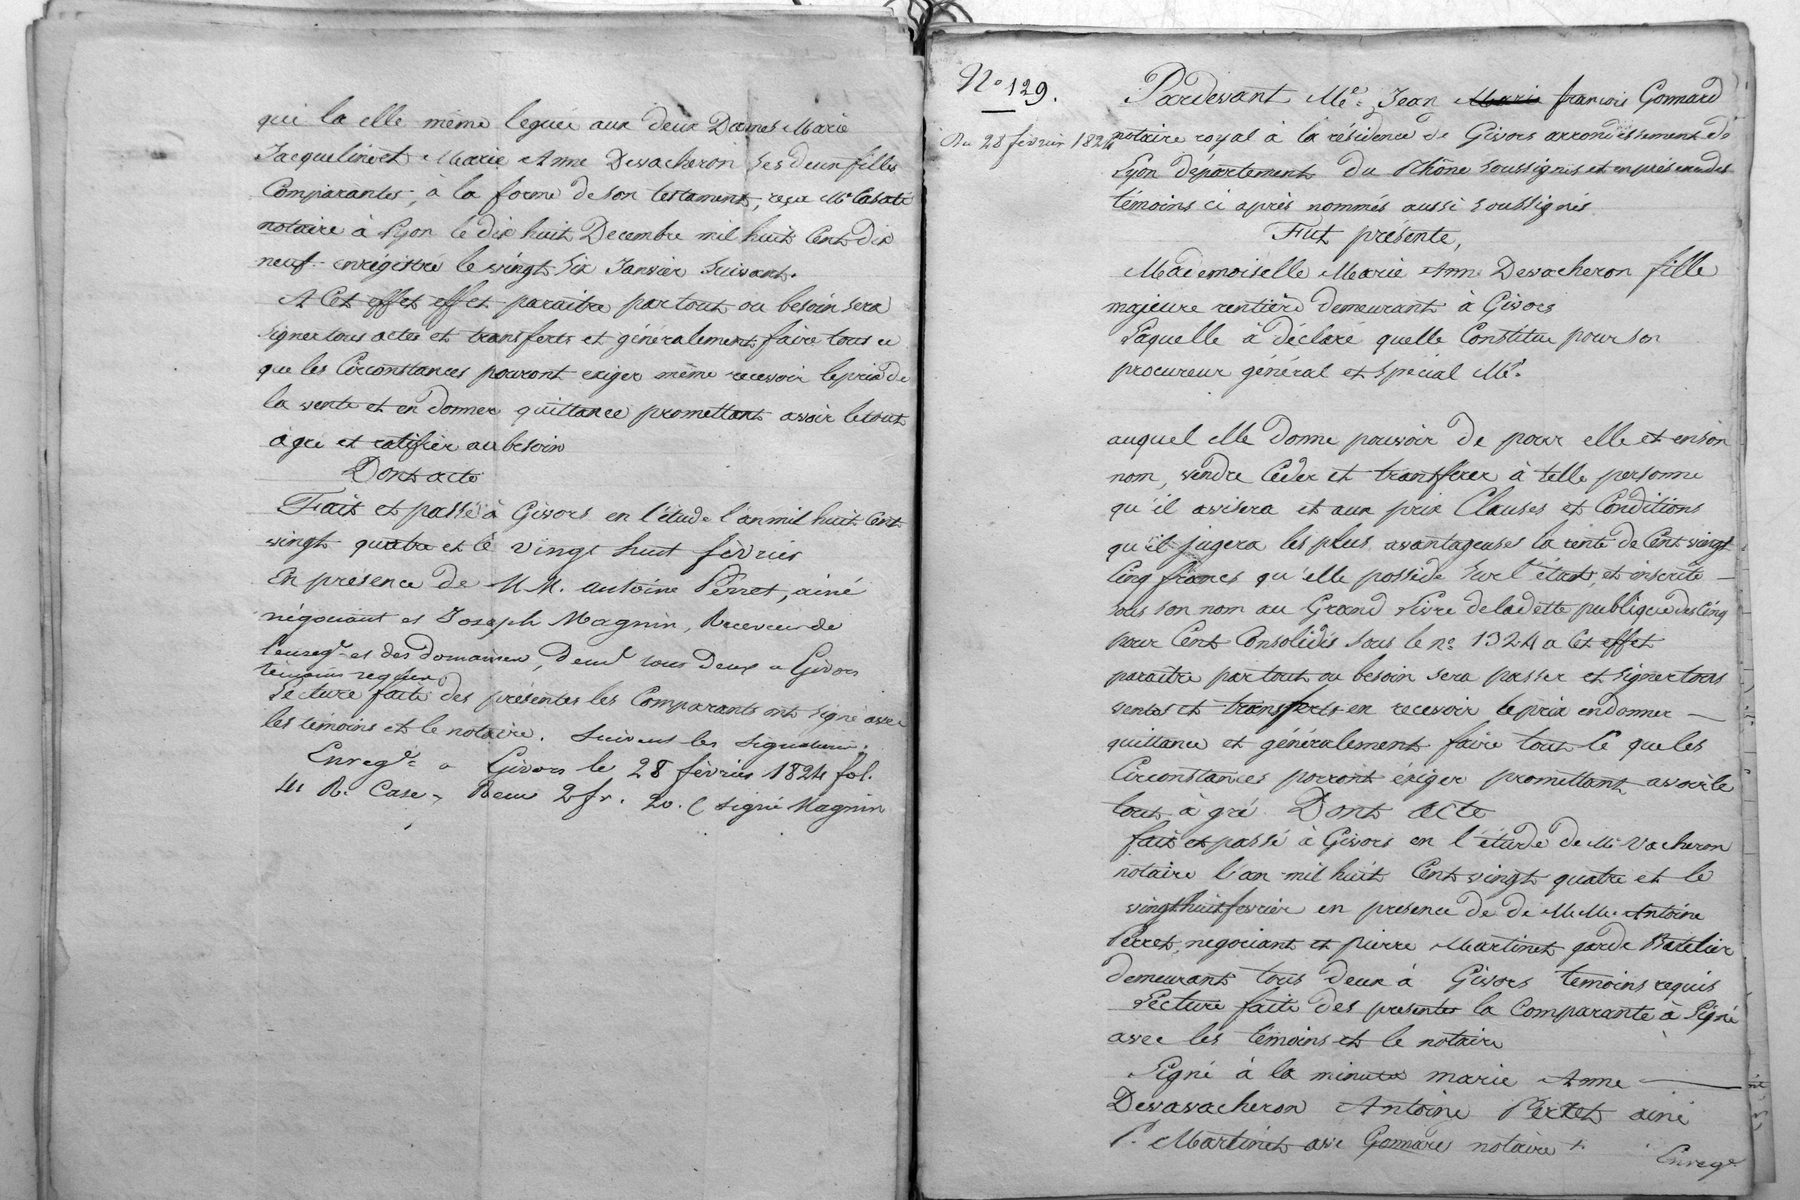 qui la elle même leguée aux deux Dames Marie
Jacqueline et Marie Anne Devacheron ses deux filles
Comparantes, à la forme de son testament, reçu Me Casati
notaire à Lyon le dix huit Decembre mil huit Cent dix
neuf enrégistré le vingt six Janvier suivant.
A Cet effet effet paraitre partout ou besoin sera
signer tous actes et transferts et généralement faire tous ce
que les Circonstances pouront exiger même recevoir le prix de
la vente et en donner quittance promettant avoir le tout
à gré et ratifier au besoin
Dont acte
Fait et passé à Givors en l'étude l'an mil huit Cent
vingt quatre et le vingt huit février
En présence de M.M. antoine Perret, ainé
négociant et Joseph Magnin, Receveur de
l'enregt et des domaines, demt tous deux a Givors
témoins requis
Lecture faite des présentes les Comparants ont signé avec
les témoins et le notaire. suivent les signatures.
Enregé a Givors le 28 février 1824 fol.
R. Case Reçu 2 fr. 20. C signé Magnin
No 129.
Du 28 février 1824
Pardevant Me Jean Marie francois Gonnard
notaire royal à la résidence de Givors arrondissement de
Lyon département du Rhône soussignés et en présence des
témoins ci après nommés aussi soussignés
Fut présente,
Mademoiselle Marie Anne Devacheron fille
majeure rentière demeurant à Givors
Laquelle à déclaré quelle Constitue pour son
procureur général et spécial Mr
auquel elle donne pouvoir de pour elle et en son
nom, vendre Céder et transférer à telle personne
qu'il avisera et aux prix Clauses et Conditions
qu'il jugera les plus avantageuses la rente de Cent vingt
Cinq francs qu'elle possède sur l'état, et inscrite
sous son nom au Grand Livre de la dette publique des Cinq
pour Cent Consolidés sous le no 1324 a Cet effet
paraitre partout ou besoin sera passer et signer tous
ventes et transferts en recevoir le prix en donner
quittance et généralement faire tout Ce que les
Circonstances porront exiger promettant avoir le
tout à gré Dont acte
fait et passé à Givors en l'étude de Me Vacheron
notaire l'an mil huit Cent vingt quatre et le
vingt huit fevrier en presence de de MM. Antoine
Perret, negociant et pierre Martinet garde Batelier
demeurant tous deux à Givors temoins requis
Lecture faite des presentes la Comparante à Signé
avec les témoins et le notaire
Signé à la minute marie Anne
Devavacheron Antoine Perret ainé
P. Martinet ave Gonnard notaire
Enregé